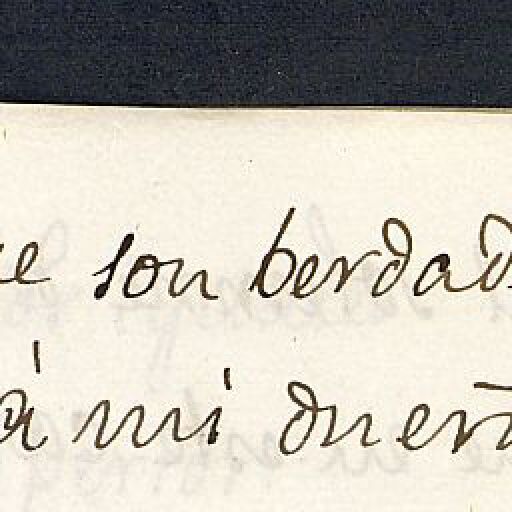 e son berdad
à mi dueñ